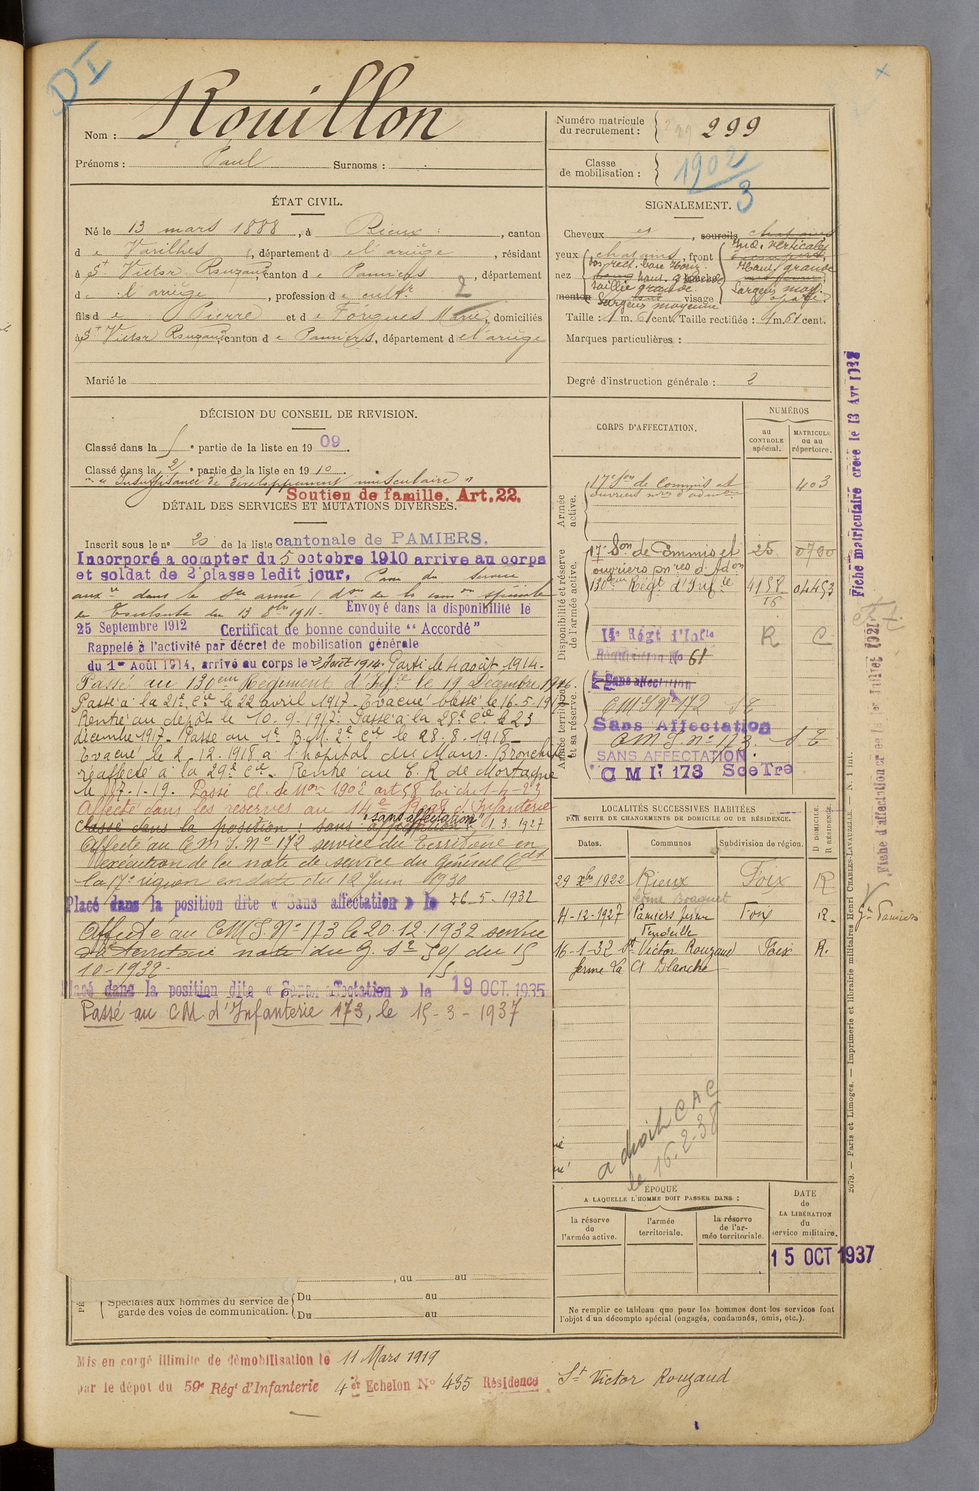 DI
Nom : Rouillon
Prénoms : Paul Surnoms :
Numéro matricule du recrutement : 299
Classe de mobilisation : 1902/3
ÉTAT CIVIL.
Né le 13 mars 1888, à Rieux, canton
de Varilhes, département de l'ariège, résidant
à St Victor Rouzaud canton de Pamiers, département
de l'ariège, profession de cultr 2
fils de Pierre et de Forgues Marie, domiciliés
à St Victor Rouzaud, canton de Pamiers, département de l'ariège
Marié le
SIGNALEMENT.
Cheveux sourcils chatains
yeux chatains, front
nez
menton visage
Taille : 1 m. 61 cent. Taille rectifiée : 1 m. 61 cent.
Marques particulières :
Degré d'instruction générale : 2
DÉCISION DU CONSEIL DE REVISION.
Classé dans la partie de la liste en 1909
Classé dans la 2e partie de la liste en 1910
"Insuffisance de développement musculaire"
Soutien de famille. Art. 22.
DÉTAIL DES SERVICES ET MUTATIONS DIVERSES.
Inscrit sous le n° 20 de la liste cantonale de PAMIERS.
Incorporé a compter du 5 octobre 1910 arrive au corps
et soldat de 2e classe ledit jour.
Envoyé dans la disponibilité le
25 Septembre 1912 Certificat de bonne conduite "Accordé"
Rappelé à l'activité par décret de mobilisation générale
du 1er Août 1914, arrivé au corps le 3 Août 1914. Parti le 4 août 1914.
Passé au 130eme Régiment d'Infie le 19 Décembre 1916.
Passé à la 21e Cie le 22 avril 1917. Evacué blessé le 16.5.1917
Rentré au dépôt le 10.9.1917. Passé à la 28e Cie le 23
décembre 1917. Passé au 1er B.M. 2e Cie le 28.8.1918
Evacué le 2.12.1918 à l'hôpital du Mans. Bronchite
réaffecté à la 29e Cie. Rentré au C.R. de Mortagne
le 17.1.19. Passé cl. de Mon 1902 art 58 loi du 1-4-23
Affecté dans les réserves au 14e d'Infanterie
classé dans la position : "sans affectation" 1.3.1927
Affecté au C M I N° 172 service du Territoire en
exécution de la note de service du Général Cdt
la 17e région en date du 12 Juin 1930
Placé dans la position dite « Sans affectation » le 26-5-1932
Affecté au C.M.I. N° 173 le 20.12.1932 service
du territoire note du
10-1932
Placé dans la position dite « Sans affectation » le 19 OCT. 1935
Passé au C.M. d'Infanterie 173, le 15-3-1937
CORPS D'AFFECTATION.
NUMÉROS
au CONTROLE spécial.
MATRICULE ou au répertoire.
Armée active.
17e Son de Commis et 403
ouvriers mres d'admon
Disponibilité et réserve de l'armée active.
17e Son de Commis et 25 0790
ouvriers mres d'Adon
130eme Régt d'Infie 4158 04453
14e Régt d'Infie R C
Réquisition No 61
Armée territoriale et sa réserve.
Sans affectation
CMI N° 172 SE
Sans Affectation
CMI n° 173. S.E
SANS AFFECTATION
C M I: 173 Sce Tre
LOCALITÉS SUCCESSIVES HABITÉES
PAR SUITE DE CHANGEMENTS DE DOMICILE OU DE RÉSIDENCE.
Dates. Communes Subdivision de région. D. DOMICILE. R. RÉSIDENCE.
29 Xbre 1922 Rieux Foix R
11-12-1927 Pamiers ferme Foix R.
16-1-32 St Victor Rouzaud Foix R.
ferme La Cl Blanche
a droit C A C
le 16.2.38
ÉPOQUE
A LAQUELLE L'HOMME DOIT PASSER DANS :
la réserve de l'armée active. l'armée territoriale. la réserve de l'armée territoriale.
DATE de LA LIBÉRATION du service militaire.
15 OCT 1937
, du au
Spéciales aux hommes du service de garde des voies de communication.
Du au
Du au
Ne remplir ce tableau que pour les hommes dont les services font
l'objet d'un décompte spécial (engagés, condamnés, omis, etc.).
Mis en congé illimité de démobilisation le 11 Mars 1919
par le dépot du 59e Régt d'Infanterie 4er Echelon N° 435 Résidence St Victor Rouzaud
2679. — Paris et Limoges. — Imprimerie et librairie militaires Henri CHARLES-LAVAUZELLE. — N. 1